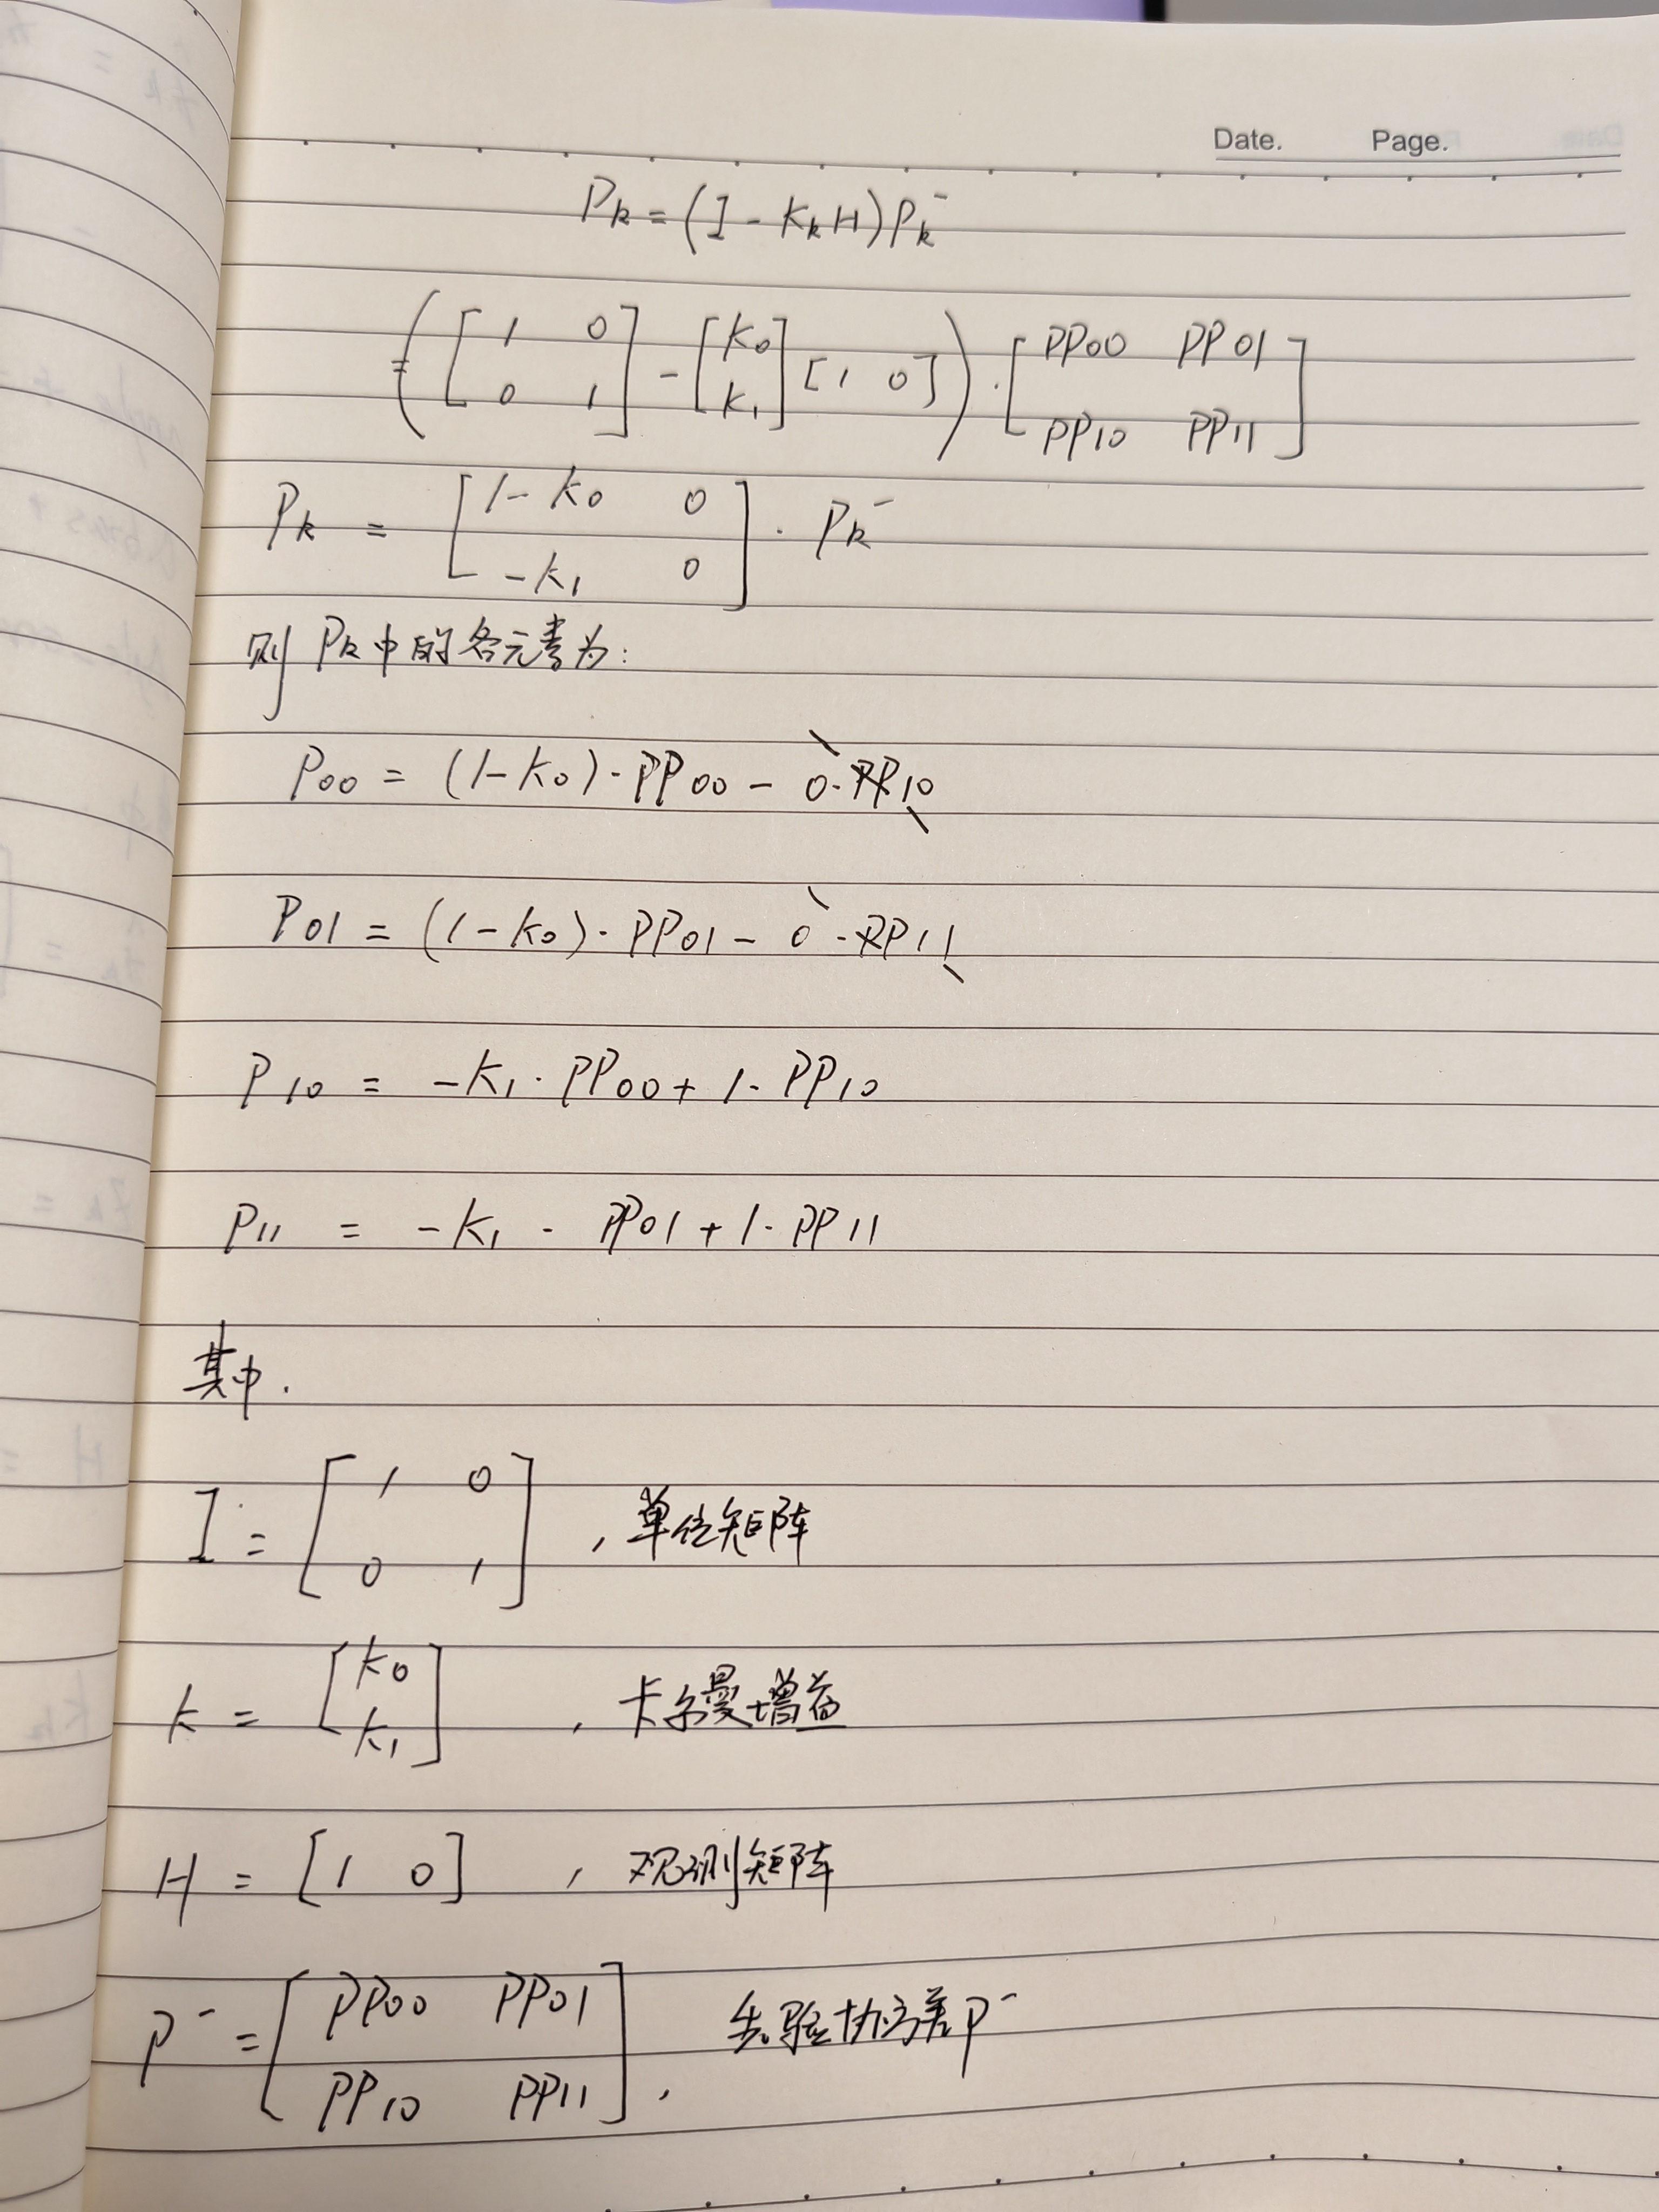 Date. Page.
Pk = (I - KkH)Pk⁻
= ([1 0; 0 1] - [K0; K1] [1 0]) · [PP00 PP01; PP10 PP11]
Pk = [1-K0 0; -K1 0] · Pk⁻
则 Pk中的各元素为:
P00 = (1-K0)·PP00 - 0·PP10
P01 = (1-K0)·PP01 - 0·PP11
P10 = -K1·PP00 + 1·PP10
P11 = -K1·PP01 + 1·PP11
其中.
I = [1 0; 0 1], 单位矩阵
K = [K0; K1], 卡尔曼增益
H = [1 0], 观测矩阵
P⁻ = [PP00 PP01; PP10 PP11], 先验协方差P⁻